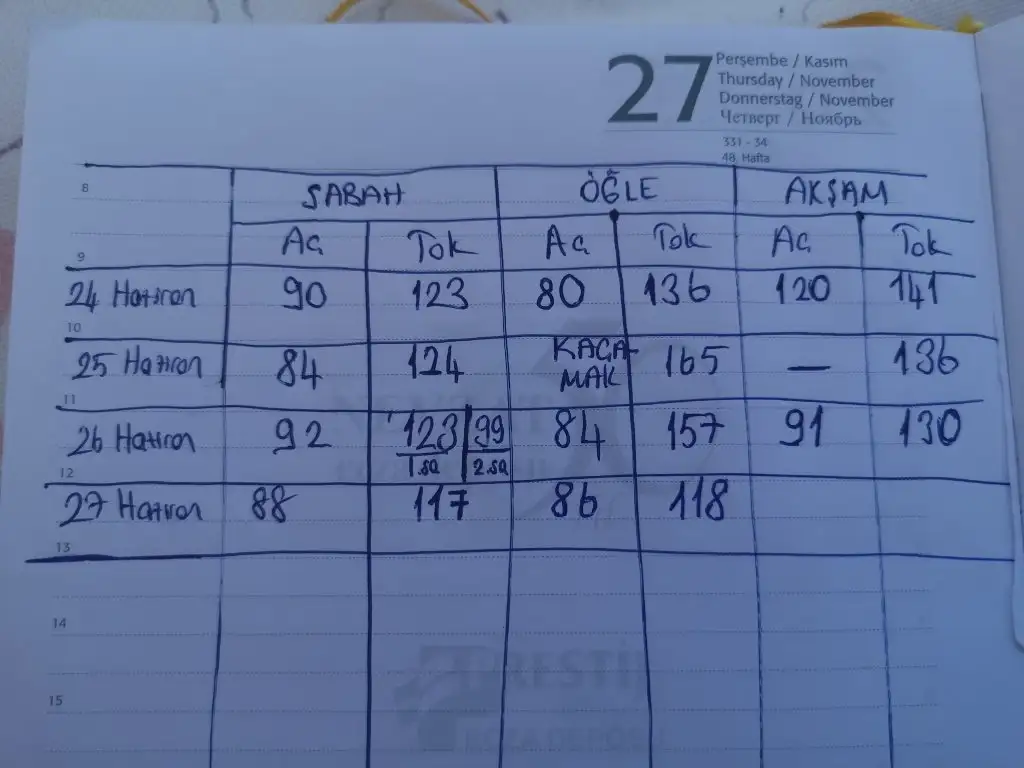 27 Perşembe / Kasım
Thursday / November
Donnerstag / November
Четверг / Ноябрь
331 - 34
48. Hafta
8 SABAH ÖĞLE AKŞAM
Aç Tok Aç Tok Aç Tok
9
24 Haziran 90 123 80 136 120 141
10
25 Haziran 84 124 KAÇA-MAK 165 — 136
11
26 Haziran 92 123 99 84 157 91 130
1.sa 2.sa
12
27 Haziran 88 117 86 118
13
14
15